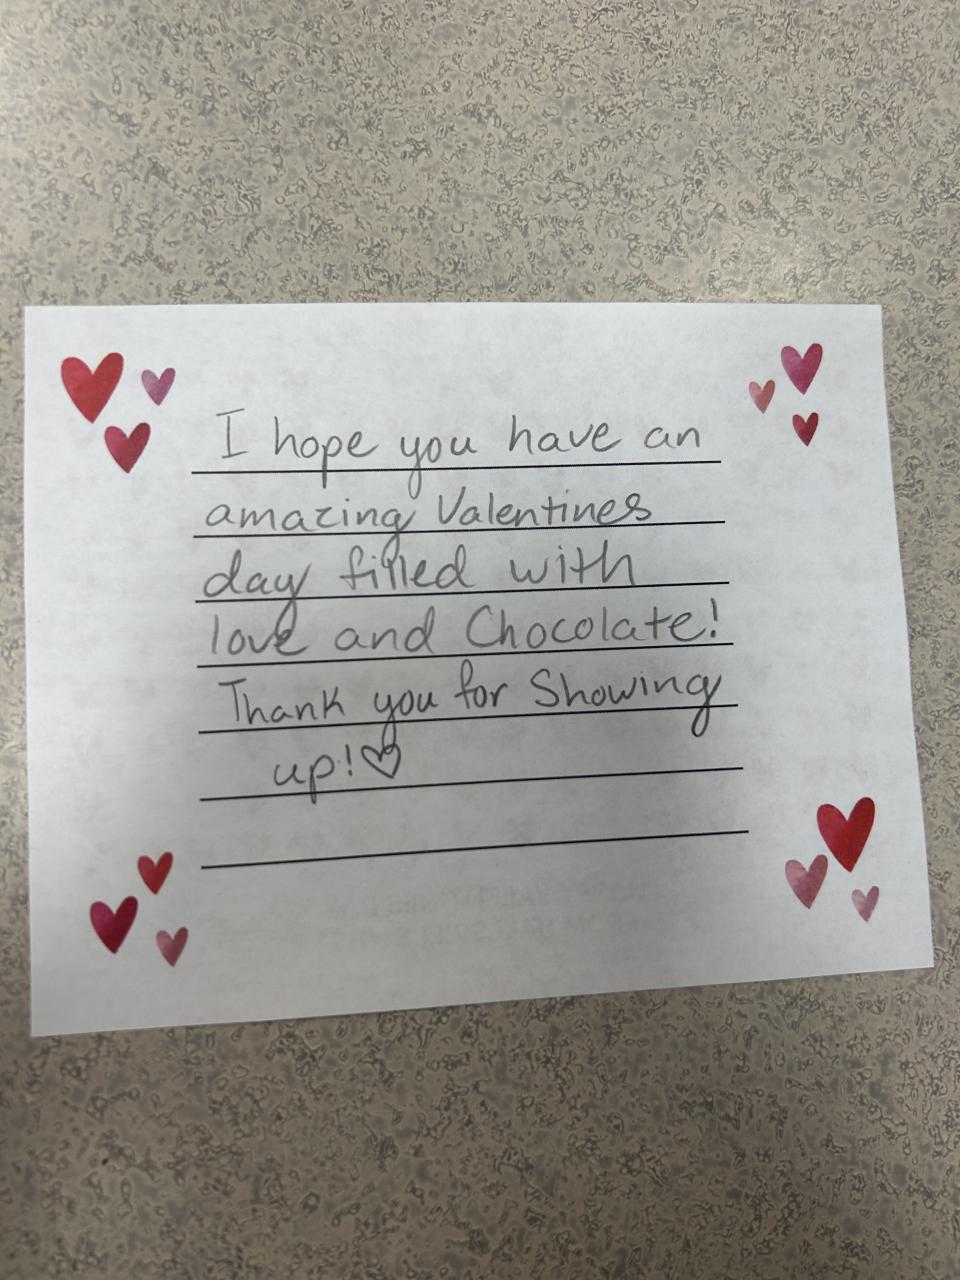 I hope you have an
amazing Valentines
day filled with
love and Chocolate!
Thank you for Showing
up!♡